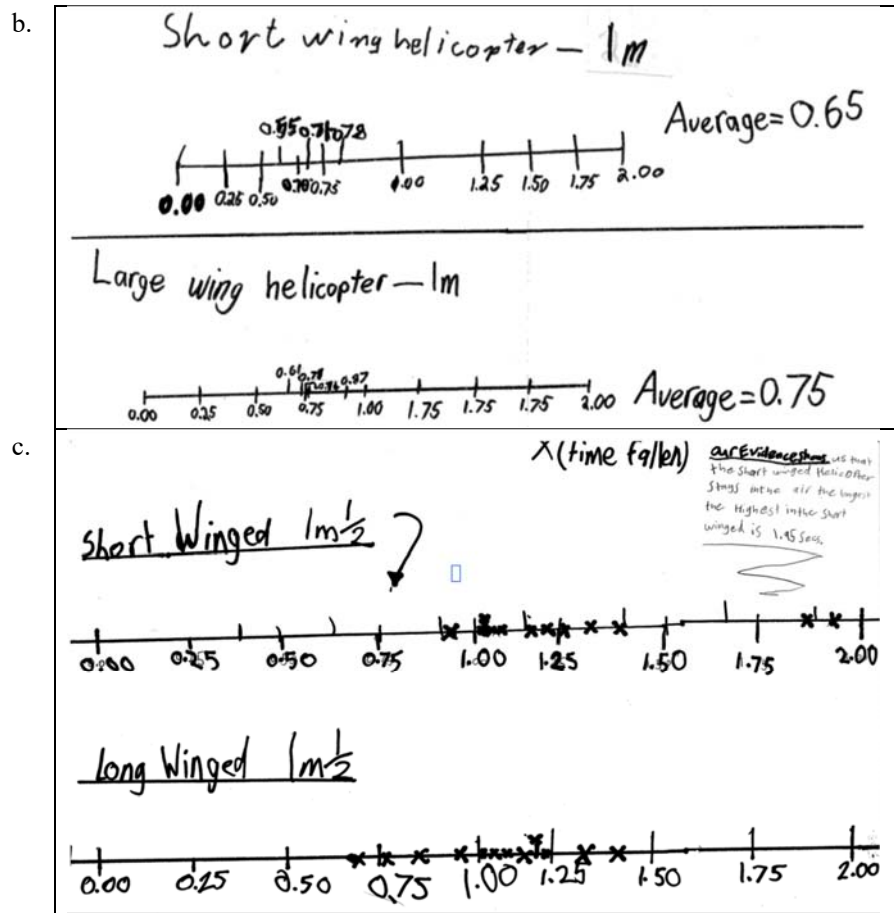 b.
Short wing helicopter – 1m
0.55 0.71 0.78
Average=0.65
0.00 0.25 0.50 0.70 0.75 1.00 1.25 1.50 1.75 2.00
Large wing helicopter – 1m
0.61 0.78 0.87
0.00 0.25 0.50 0.75 1.00 1.75 1.75 1.75 2.00
Average=0.75
c.
X (time fallen)
our Evidence shows us that
the short winged Helicopter
Stays in the air the longest
the Highest in the short
winged is 1.95 secs.
Short Winged 1m½
0.00 0.25 0.50 0.75 1.00 1.25 1.50 1.75 2.00
Long Winged 1m½
0.00 0.25 0.50 0.75 1.00 1.25 1.50 1.75 2.00